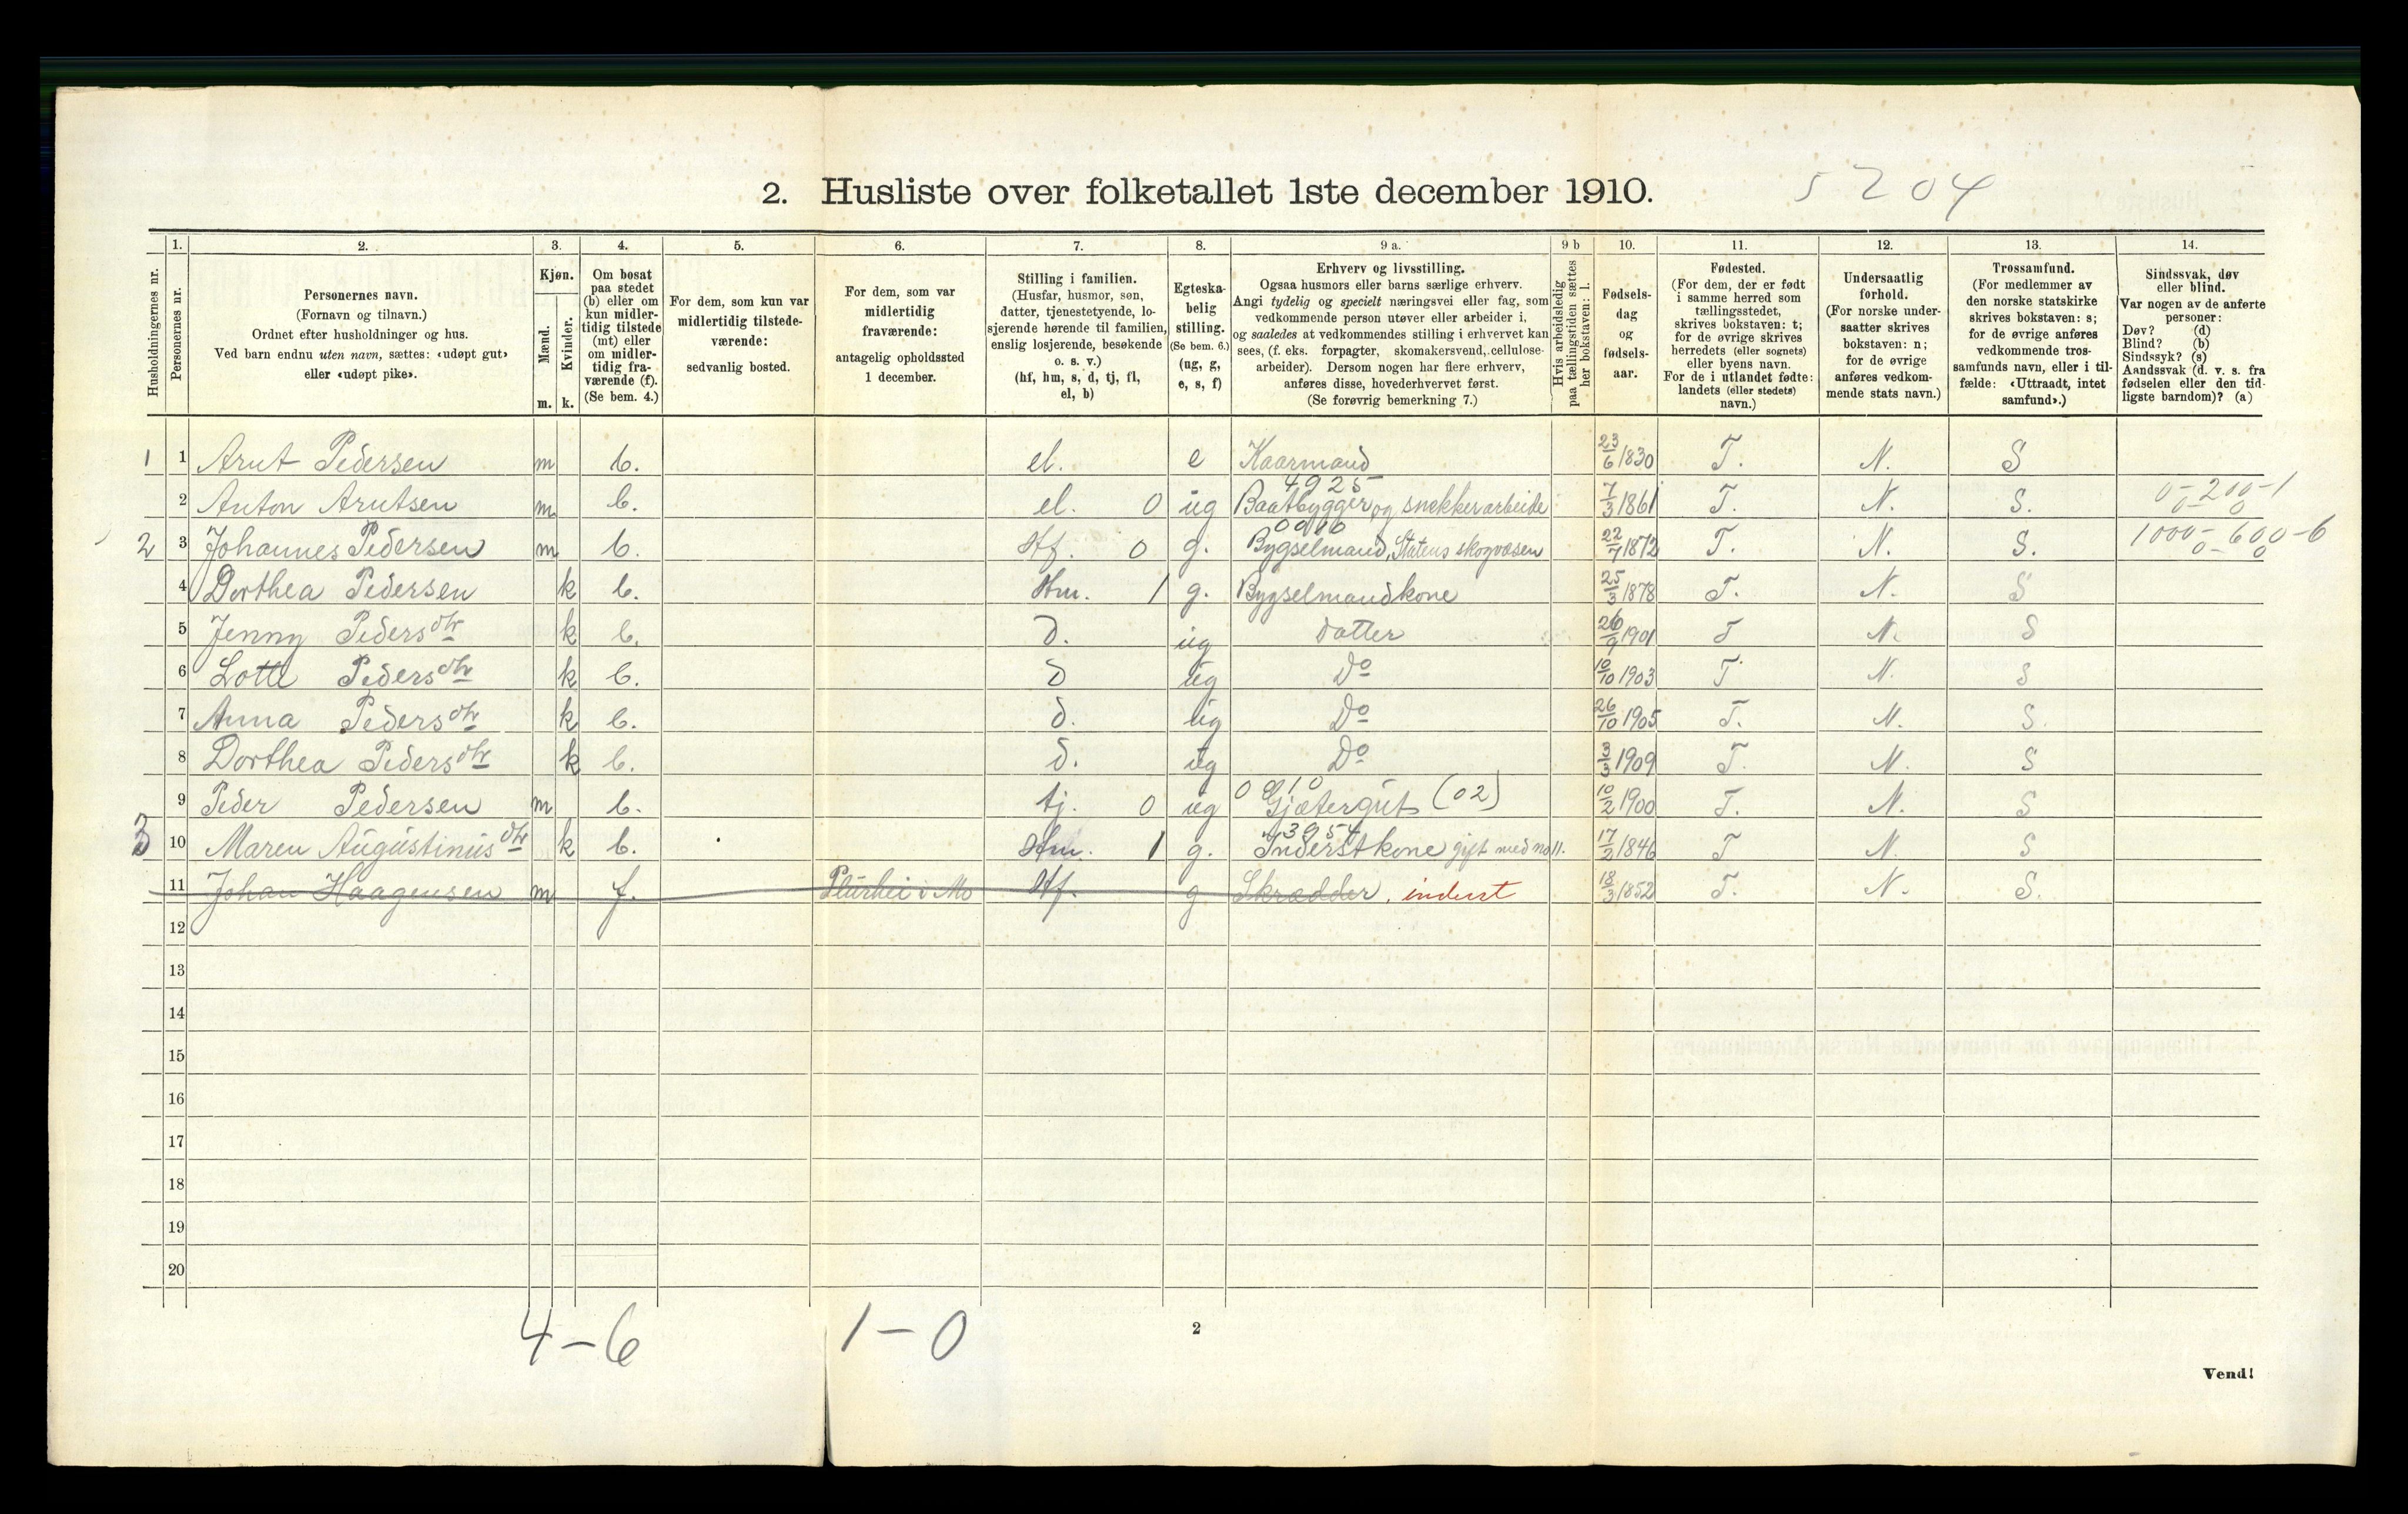 2. Husliste over folketallet 1ste december 1910. 5204
Husholdningernes nr.
1. Personernes nr.
2. Personernes navn.
(Fornavn og tilnavn.)
Ordnet efter husholdninger og hus.
Ved barn endnu uten navn, sættes: «udøpt gut»
eller «udøpt pike».
3. Kjøn.
Mænd. Kvinder.
m. k.
4. Om bosat
paa stedet
(b) eller om
kun midler-
tidig tilstede
(mt) eller
om midler-
tidig fra-
værende (f).
(Se bem. 4.)
5. For dem, som kun var
midlertidig tilstede-
værende:
sedvanlig bosted.
6. For dem, som var
midlertidig
fraværende:
antagelig opholdssted
1 december.
7. Stilling i familien.
(Husfar, husmor, søn,
datter, tjenestetyende, lo-
sjerende hørende til familien,
enslig losjerende, besøkende
o. s. v.)
(hf, hm, s, d, tj, fl,
el, b)
8. Egteska-
belig
stilling.
(Se bem. 6.)
(ug, g,
e, s, f)
9 a. Erhverv og livsstilling.
Ogsaa husmors eller barns særlige erhverv.
Angi tydelig og specielt næringsvei eller fag, som
vedkommende person utøver eller arbeider i,
og saaledes at vedkommendes stilling i erhvervet kan
sees, (f. eks. forpagter, skomakersvend, cellulose-
arbeider). Dersom nogen har flere erhverv,
anføres disse, hovederhvervet først.
(Se forøvrig bemerkning 7.)
9 b Hvis arbeidsledig
paa tællingstiden sættes
her bokstaven: l.
10. Fødsels-
dag
og
fødsels-
aar.
11. Fødested.
(For dem, der er født
i samme herred som
tællingsstedet,
skrives bokstaven: t;
for de øvrige skrives
herredets (eller sognets)
eller byens navn.
For de i utlandet fødte:
landets (eller stedets)
navn.)
12. Undersaatlig
forhold.
(For norske under-
saatter skrives
bokstaven: n;
for de øvrige
anføres vedkom-
mende stats navn.)
13. Trossamfund.
(For medlemmer av
den norske statskirke
skrives bokstaven: s;
for de øvrige anføres
vedkommende tros-
samfunds navn, eller i til-
fælde: «Uttraadt, intet
samfund».)
14. Sindssvak, døv
eller blind.
Var nogen av de anførte
personer:
Døv? (d)
Blind? (b)
Sindssyk? (s)
Aandssvak (d. v. s. fra
fødselen eller den tid-
ligste barndom)? (a)
1 1 Arut Pedersen m b. el. e Kaarmand 23/6 1830 T. N. S
4925
2 Anton Arutsen m b. el. 0 ug Baatbygger og snekkerarbeide 7/3 1861 T. N. S. 0-200-1
0 0
0910
2 3 Johannes Pedersen m b. Hf. 0 g. Bygselmand, Statens skogvæsen 22/7 1872 T. N. S. 1000-600-6
0 0
4 Dorthea Pedersen k b. Hm. 1 g. Bygselmandkone 25/3 1878 T. N. S
5 Jenny Pedersdtr k b. d. ug datter 26/9 1901 T N. S
6 Lotte Pedersdtr k b. d ug Do 10/10 1903 T N. S
7 Anna Pedersdtr k b. d. ug Do 26/10 1905 T. N. S.
8 Dorthea Pedersdtr k b. d. ug Do 3/3 1909 T. N. S
0910
9 Peder Pedersen m b. tj. 0 ug Gjætergut (02) 10/2 1900 T. N. S
3954
3 10 Maren Augustinusdtr k b. Hm. 1 g. Inderstkone gift med no 11. 17/2 1846 T N. S
11 Johan Haagensen m f. i Mo Hf. g Skrædder, inderst 18/3 1852 T. N. S.
12
13
14
15
16
17
18
19
20
4-6 1-0
2
Vend!